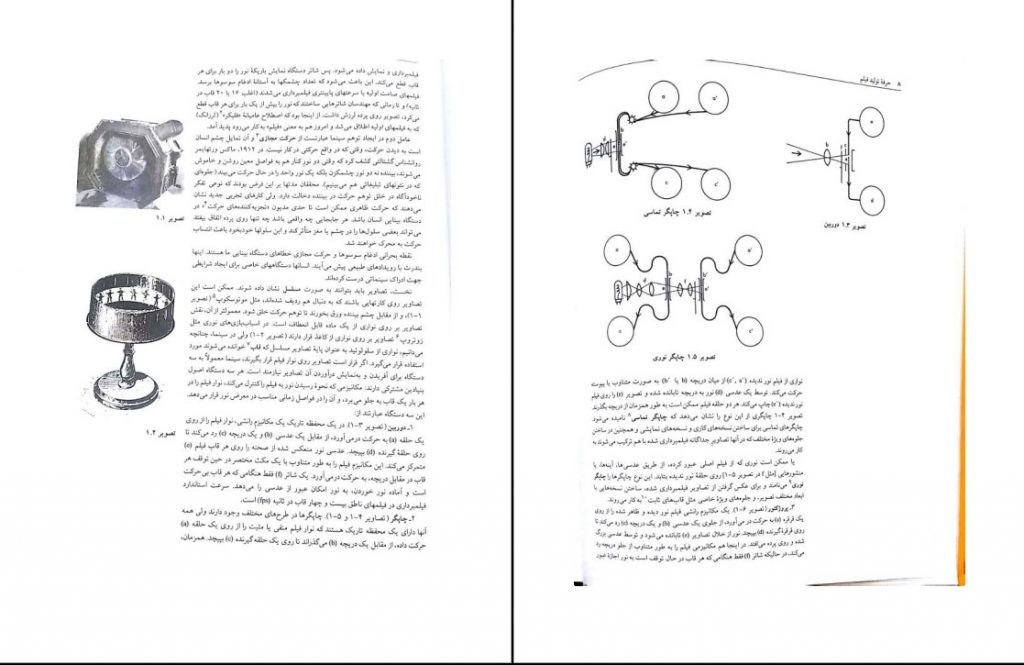 فیلمبرداری و نمایش داده می‌شود. پس شاتر دستگاه نمایش باریکهٔ نور را دو بار برای هر
قاب قطع می‌کند. این باعث می‌شود که تعداد چشمکها به آستانهٔ ادغام سوسوها برسد.
فیلمهای صامت اولیه با سرعتهای پایینتری فیلمبرداری می‌شدند (اغلب ۱۶ یا ۲۰ قاب در
ثانیه) و تا زمانی که مهندسان شاترهایی ساختند که نور را بیش از یک بار برای هر قاب قطع
می‌کرد، تصویر روی پرده لرزش داشت. از اینجا بود که اصطلاح عامیانهٔ «فلیک» (لرزانک)
که به فیلمهای اولیه اطلاق می‌شد و امروز هم به معنی «فیلم» به کار می‌رود پدید آمد.
عامل دوم در ایجاد توهم سینما عبارتست از حرکت مجازی۳ و آن تمایل چشم انسان
است به دیدن حرکت، وقتی که در واقع حرکتی در کار نیست. در ۱۹۱۲، ماکس ورتهایمر
روانشناس گشتالتی کشف کرد که وقتی دو نورِ کنار هم به فواصل معین روشن و خاموش
می‌شوند، بیننده نه دو نور چشمکزن بلکه یک نور واحد را در حال حرکت می‌بیند (جلوه‌ای
که در نئونهای تبلیغاتی هم می‌بینیم). محققان مدتها بر این فرض بودند که نوعی تفکر
ناخودآگاه در خلق توهم حرکت در بیننده دخالت دارد. ولی کارهای تجربی جدید نشان
می‌دهند که حرکت ظاهری ممکن است تا حدی مدیون «تجزیه‌کننده‌های حرکت»۴ در
دستگاه بینایی انسان باشد. هر جابجایی چه واقعی باشد چه تنها روی پرده اتفاق بیفتد
می‌تواند بعضی سلول‌ها را در چشم یا مغز متأثر کند و این سلولها خودبخود باعث انتساب
حرکت به محرک خواهند شد.
نقطه بحرانی ادغام سوسوها و حرکت مجازی خطاهای دستگاه بینایی ما هستند. اینها
بندرت با رویدادهای طبیعی پیش می‌آیند. انسانها دستگاههای خاصی برای ایجاد شرایطی
جهت ادراک سینمائی درست کرده‌اند.
نخست، تصاویر باید بتوانند به صورت مسلسل نشان داده شوند. ممکن است این
تصاویر روی کارتهایی باشند که به دنبال هم ردیف شده‌اند، مثل موتوسکوپ۵ (تصویر
۱-۱)، و از مقابل چشم بیننده ورق بخورند تا توهم حرکت خلق شود. معمولتر از آن، نقش
تصاویر بر روی نواری از یک ماده قابل انعطاف است. در اسباب‌بازی‌های نوری مثل
زوتروپ۶ تصاویر بر روی نواری از کاغذ قرار دارند (تصویر ۲-۱) ولی در سینما، چنانچه
می‌دانیم، نواری از سلولوئید به عنوان پایهٔ تصاویر مسلسل که قاب۷ خوانده می‌شوند مورد
استفاده قرار می‌گیرد. اگر قرار است تصاویر روی نوار فیلم قرار بگیرند، سینما معمولاً به سه
دستگاه برای آفریدن و به‌نمایش درآوردن آن تصاویر نیازمند است. هر سه دستگاه اصول
بنیادین مشترکی دارند: مکانیزمی که نحوهٔ رسیدن نور به فیلم را کنترل می‌کند، نوار فیلم را در
هر بار یک قاب به جلو می‌برد، و آن را در فواصل زمانی مناسب در معرض نور قرار می‌دهد.
این سه دستگاه عبارتند از:
۱ـ دوربین (تصویر ۳-۱). در یک محفظه تاریک یک مکانیزم رانشی، نوار فیلم را از روی
یک حلقه (a) به حرکت درمی‌آورد، از مقابل یک عدسی (b) و یک دریچه (c) رد می‌کند تا
روی حلقهٔ گیرنده (d) بپیچد. عدسی نور منعکس شده از صحنه را روی هر قاب فیلم (e)
متمرکز می‌کند. این مکانیزم فیلم را به طور متناوب با یک مکث مختصر در حین توقف هر
قاب در مقابل دریچه، به حرکت درمی‌آورد. یک شاتر (f) فقط هنگامی که هر قاب بی‌حرکت
است و آماده نور خوردن، به نور امکان عبور از عدسی را می‌دهد. سرعت استاندارد
فیلمبرداری در فیلمهای ناطق بیست و چهار قاب در ثانیه (fps) است.
۲ـ چاپگر (تصاویر ۴-۱ و ۵-۱). چاپگرها در طرح‌های مختلف وجود دارند ولی همه
آنها دارای یک محفظه تاریک هستند که نوار فیلم منفی یا مثبت را از روی یک حلقه (a)
حرکت داده، از مقابل یک دریچه (b) می‌گذراند تا روی یک حلقه گیرنده (c) بپیچد. همزمان،
تصویر ۱.۱
تصویر ۱.۲
۸ حرفهٔ تولید فیلم
تصویر ۱.۴ چاپگر تماسی
تصویر ۱.۳ دوربین
تصویر ۱.۵ چاپگر نوری
نواری از فیلم نور ندیده (a´, c´) از میان دریچه (b یا b´) به صورت متناوب یا پیوسته
حرکت می‌کند. توسط یک عدسی (d) نور به دریچه تابانده شده و تصویر (e) را روی فیلم
نور ندیده (e´) چاپ می‌کند. هر دو حلقه فیلم ممکن است به طور همزمان از دریچه بگذرند.
تصویر ۴-۱ چاپگری از این نوع را نشان می‌دهد که چاپگر تماسی۸ نامیده می‌شود.
چاپگرهای تماسی برای ساختن نسخه‌های کاری و نسخه‌های نمایشی و همچنین در ساختن
جلوه‌های ویژهٔ مختلف که در آنها تصاویر جداگانه فیلمبرداری شده با هم ترکیب می‌شوند به
کار می‌روند.
یا ممکن است نوری که از فیلم اصلی عبور کرده، از طریق عدسی‌ها، آینه‌ها، یا
منشورهایی (مثل f در تصویر ۵-۱) روی حلقهٔ نور ندیده بتابد. این نوع چاپگرها را چاپگر
نوری۹ می‌نامند و برای عکس گرفتن از تصاویر فیلمبرداری شده، ساختن نسخه‌هایی با
ابعاد مختلف تصویر، و جلوه‌های ویژهٔ خاصی مثل قاب‌های ثابت۱۰ به کار می‌روند.
۳ـ پروژکتور (تصویر ۶-۱). یک مکانیزم رانشی فیلم نور دیده و ظاهر شده را از روی
یک قرقره (a) به حرکت در می‌آورد، از جلوی یک عدسی (b) و یک دریچه (c) رد می‌کند تا
روی قرقرهٔ گیرنده (d) بپیچد. نور از خلال تصاویر (e) تابانده می‌شود و توسط عدسی بزرگ
شده و روی پرده می‌افتد. در اینجا هم مکانیزمی فیلم را به طور متناوب از جلو دریچه رد
می‌کند، در حالیکه شاتر (f) فقط هنگامی که هر قاب در حال توقف است به نور اجازهٔ عبور